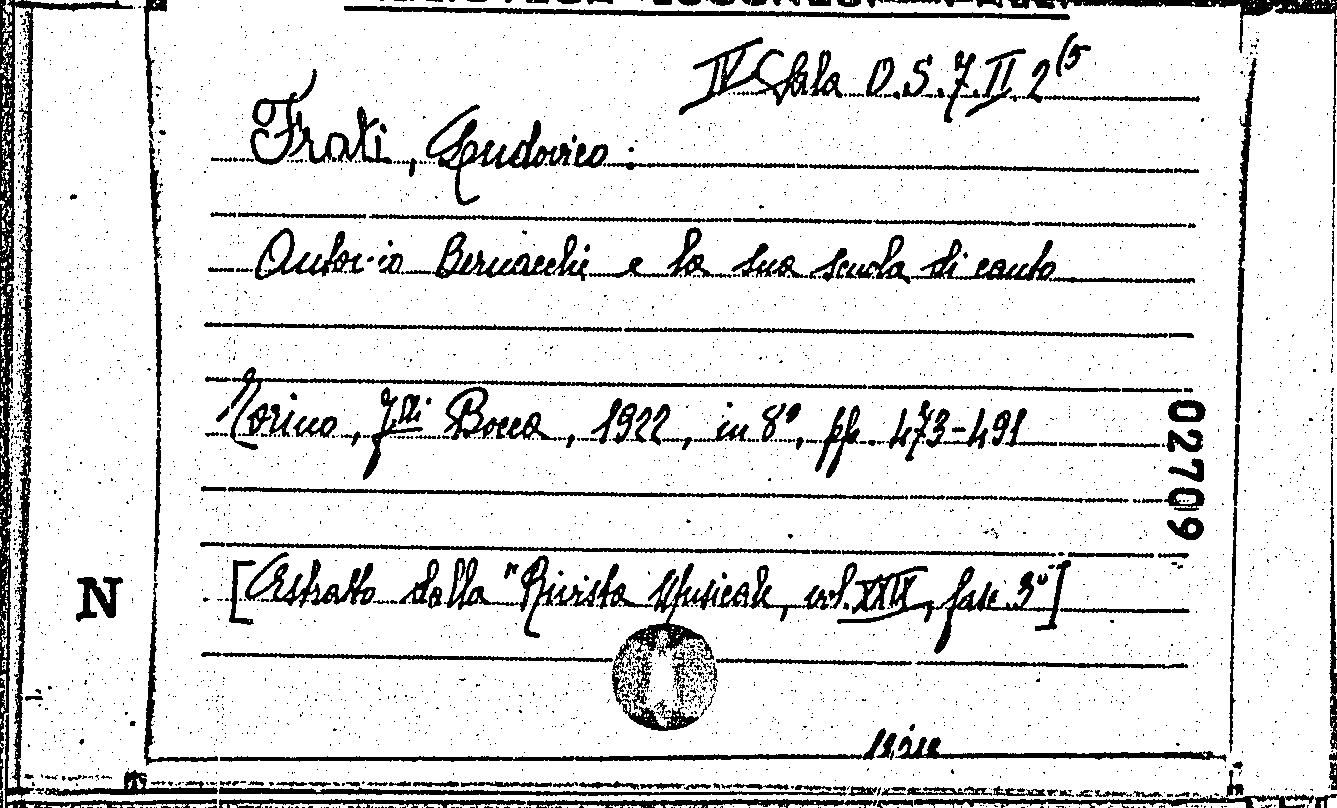 IV Sala O.S.7.II.2(5
Frati, Ludovico:
Antonio Bernacchi e la sua scuola di canto
Torino, F.lli Bocca, 1922, in 8°, pp. 473-491
02709
[Estratto dalla "Rivista Musicale, vol. XXIX, fasc. 3°]
N